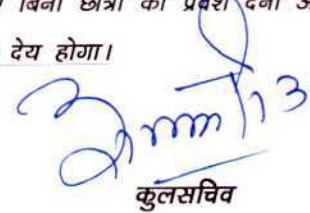 बिना छात्रों को प्रवेश देना
देय होगा।
कुलसचिव